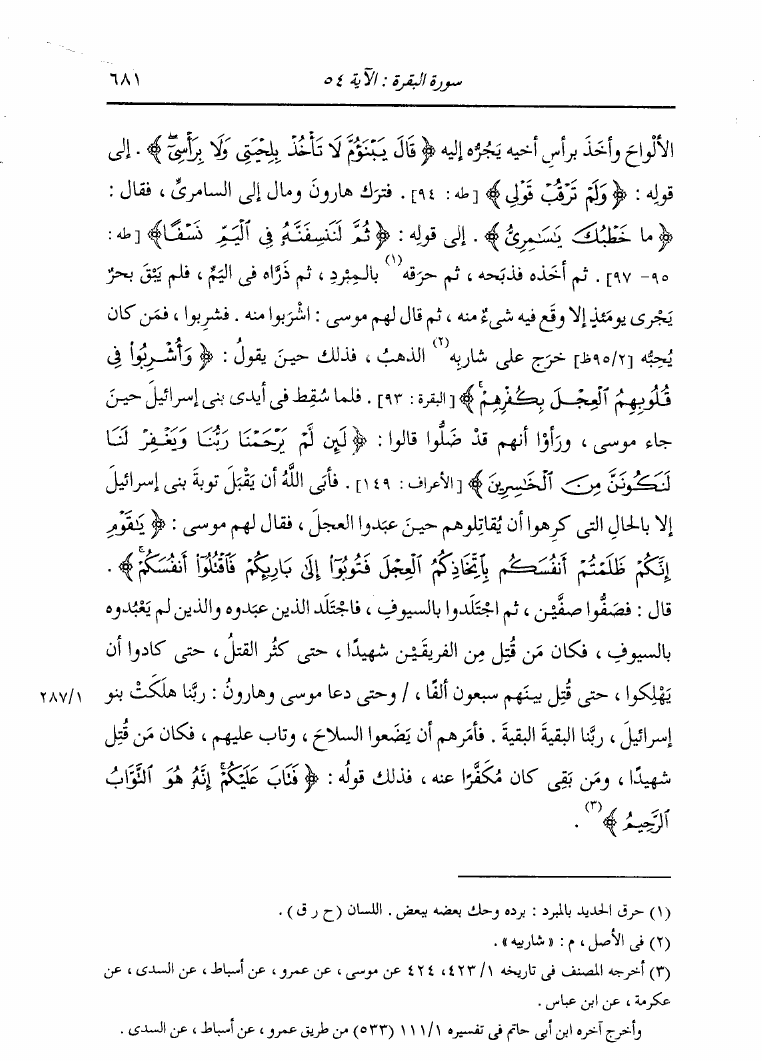 سورة البقرة : الآية ٥٤
٦٨١
الألْواحَ وأخَذَ برأسِ أخيه يَجُرُّه إليه ﴿ قَالَ يَبْنَؤُمَّ لَا تَأْخُذْ بِلِحْيَتِى وَلَا بِرَأْسِىٓ ﴾ . إلى
قوله : ﴿ وَلَمْ تَرْقُبْ قَوْلِى ﴾ [طه : ٩٤] . فترَك هارونَ ومال إلى السامرىِّ ، فقال :
﴿ ما خَطْبُكَ يَسَٰمِرِىُّ ﴾ . إلى قولِه : ﴿ ثُمَّ لَنَنسِفَنَّهُۥ فِى ٱلْيَمِّ نَسْفًا ﴾ [طه :
٩٥- ٩٧] . ثم أخَذه فذبَحه ، ثم حرَقه(١) بالمِبْردِ ، ثم ذَرَّاه فى اليَمِّ ، فلم يَبْقَ بحرٌ
يَجْرى يومَئذٍ إلا وقَع فيه شىءٌ منه ، ثم قال لهم موسى : اشْرَبوا منه . فشرِبوا ، فمَن كان
يُحِبُّه [٩٥/٢ظ] خرَج على شاربِه(٢) الذهبُ ، فذلك حينَ يقولُ : ﴿ وَأُشْرِبُوا۟ فِى
قُلُوبِهِمُ ٱلْعِجْلَ بِكُفْرِهِمْ ۚ ﴾ [البقرة : ٩٣] . فلما سُقِط فى أيدى بنى إسرائيلَ حينَ
جاء موسى ، ورأَوْا أنهم قدْ ضَلُّوا قالوا : ﴿ لَئِن لَّمْ يَرْحَمْنَا رَبُّنَا وَيَغْفِرْ لَنَا
لَنَكُونَنَّ مِنَ ٱلْخَٰسِرِينَ ﴾ [الأعراف : ١٤٩] . فأبَى اللَّهُ أن يَقْبَلَ توبةَ بنى إسرائيلَ
إلا بالحالِ التى كرِهوا أن يُقاتِلوهم حينَ عبَدوا العجلَ ، فقال لهم موسى : ﴿ يَٰقَوْمِ
إِنَّكُمْ ظَلَمْتُمْ أَنفُسَكُم بِٱتِّخَاذِكُمُ ٱلْعِجْلَ فَتُوبُوٓا۟ إِلَىٰ بَارِئِكُمْ فَٱقْتُلُوٓا۟ أَنفُسَكُمْ ۚ ﴾ .
قال : فصَفُّوا صفَّيْن ، ثم اجْتَلَدوا بالسيوفِ ، فاجْتَلَد الذين عبَدوه والذين لم يَعْبُدوه
بالسيوفِ ، فكان مَن قُتِل مِن الفريقَيْن شهيدًا ، حتى كثُر القتلُ ، حتى كادوا أن
يَهْلِكوا ، حتى قُتِل بينَهم سبعون ألفًا ، / وحتى دعا موسى وهارونُ : ربَّنا هلَكَتْ بنو
٢٨٧/١
إسرائيلَ ، ربَّنا البقيةَ البقيةَ . فأمَرهم أن يَضَعوا السلاحَ ، وتاب عليهم ، فكان مَن قُتِل
شهيدًا ، ومَن بَقِى كان مُكَفَّرًا عنه ، فذلك قولُه : ﴿ فَتَابَ عَلَيْكُمْ ۚ إِنَّهُۥ هُوَ ٱلتَّوَّابُ
ٱلرَّحِيمُ ﴾(٣) .
(١) حرق الحديد بالمبرد : برده وحك بعضه ببعض . اللسان (ح ر ق) .
(٢) فى الأصل ، م : «شاربيه» .
(٣) أخرجه المصنف فى تاريخه ١/ ٤٢٣، ٤٢٤ عن موسى ، عن عمرو ، عن أسباط ، عن السدى ، عن
عكرمة ، عن ابن عباس .
وأخرج آخره ابن أبى حاتم فى تفسيره ١/ ١١١ (٥٣٣) من طريق عمرو ، عن أسباط ، عن السدى .